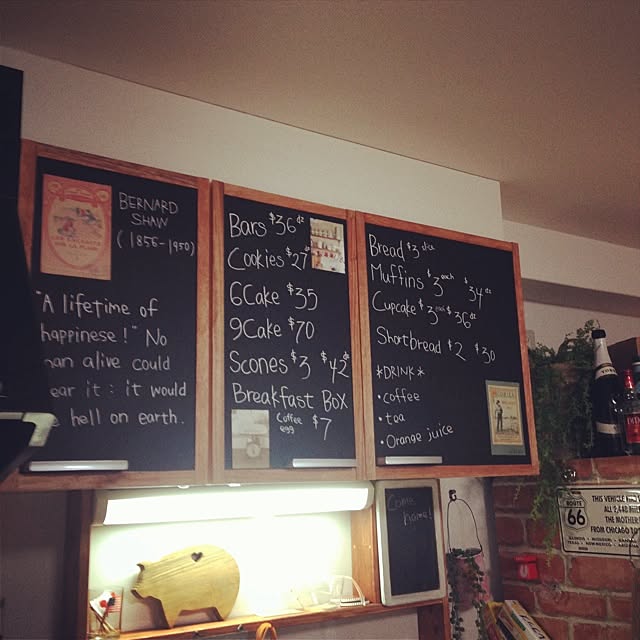 BERNARD
SHAW
(1856-1950)
"A lifetime of
happinese!" No
man alive could
ear it : it would
hell on earth.
Bars $36 dz
Cookies $27
6Cake $35
9Cake $70
Scones $3 $42 dz
Breakfast Box
Coffee
egg $7
Bread $3 slice
Muffins $3 each $34 dz
Cupcake $3 each $36 dz
Shortbread $2 $30
*DRINK*
• coffee
• tea
• Orange juice
Come
home!
ROUTE
66
THIS VEHICLE
ALL 2,448
THE MOTHER
FROM CHICAGO